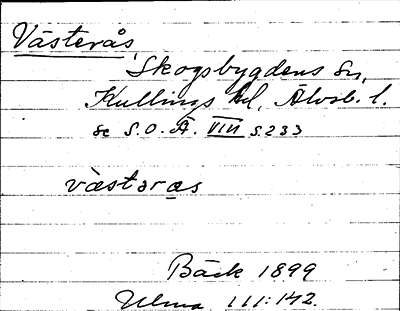 Västerås
Skogsbygdens sn,
Kullings hd, Älvsb. l.
se S.O.Ä. VIII s 233
västəras
Bäck 1899
Ulma 111:142.